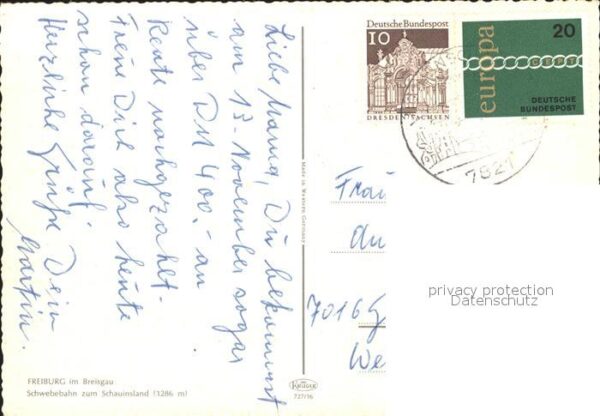 Liebe Mama, Du bekommst
am 15. November sogar
über DM 400.- an
Rente nachgezahlt.
Freue Dich also heute
schon darauf.
Herzliche Grüße Dein
Martin.
FREIBURG im Breisgau
Schwebebahn zum Schauinsland (1286 m)
Made in Western Germany
KRÜGER
727/16
Deutsche Bundespost
10
DRESDEN/SACHSEN
europa
20
DEUTSCHE
BUNDESPOST
7821
Frau
An
7016 G
We
privacy protection
Datenschutz